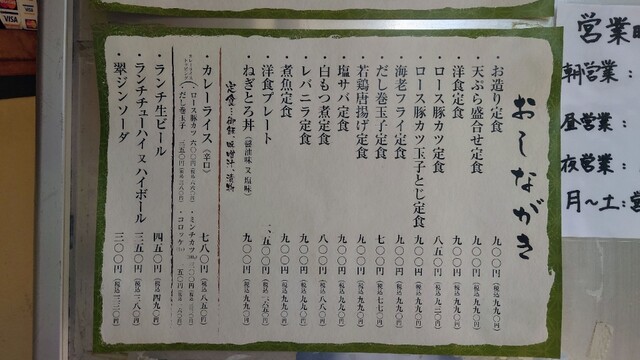 おしながき
・お造り定食 九〇〇円(税込九九〇円)
・天ぷら盛合せ定食 九〇〇円(税込九九〇円)
・洋食定食 九〇〇円(税込九九〇円)
・ロース豚カツ定食 八五〇円(税込九三〇円)
・ロース豚カツ玉子とじ定食 九〇〇円(税込九九〇円)
・海老フライ定食 九〇〇円(税込九九〇円)
・だし巻玉子定食 七〇〇円(税込七七〇円)
・若鶏唐揚げ定食 九〇〇円(税込九九〇円)
・塩サバ定食 九〇〇円(税込九九〇円)
・白もつ煮定食 八〇〇円(税込八八〇円)
・レバニラ定食 九〇〇円(税込九九〇円)
・煮魚定食 九〇〇円(税込九九〇円)
・洋食プレート 一、五〇〇円
・ねぎとろ丼(醤油味又塩味) 九〇〇円(税込九九〇円)
定食…御飯、味噌汁、漬物
・カレーライス(辛口) 七八〇円(税込八五〇円)
ロース豚カツ 六〇〇円
・ミンチカツ
だし巻玉子 三五〇円
・コロッケ
・ランチ生ビール 四五〇円(税込四九〇円)
・ランチチューハイ又ハイボール 三五〇円(税込三八〇円)
・翠ジンソーダ 三〇〇円(税込三三〇円)
営業
朝営業:
昼営業:
夜営業:
月〜土:
VISA